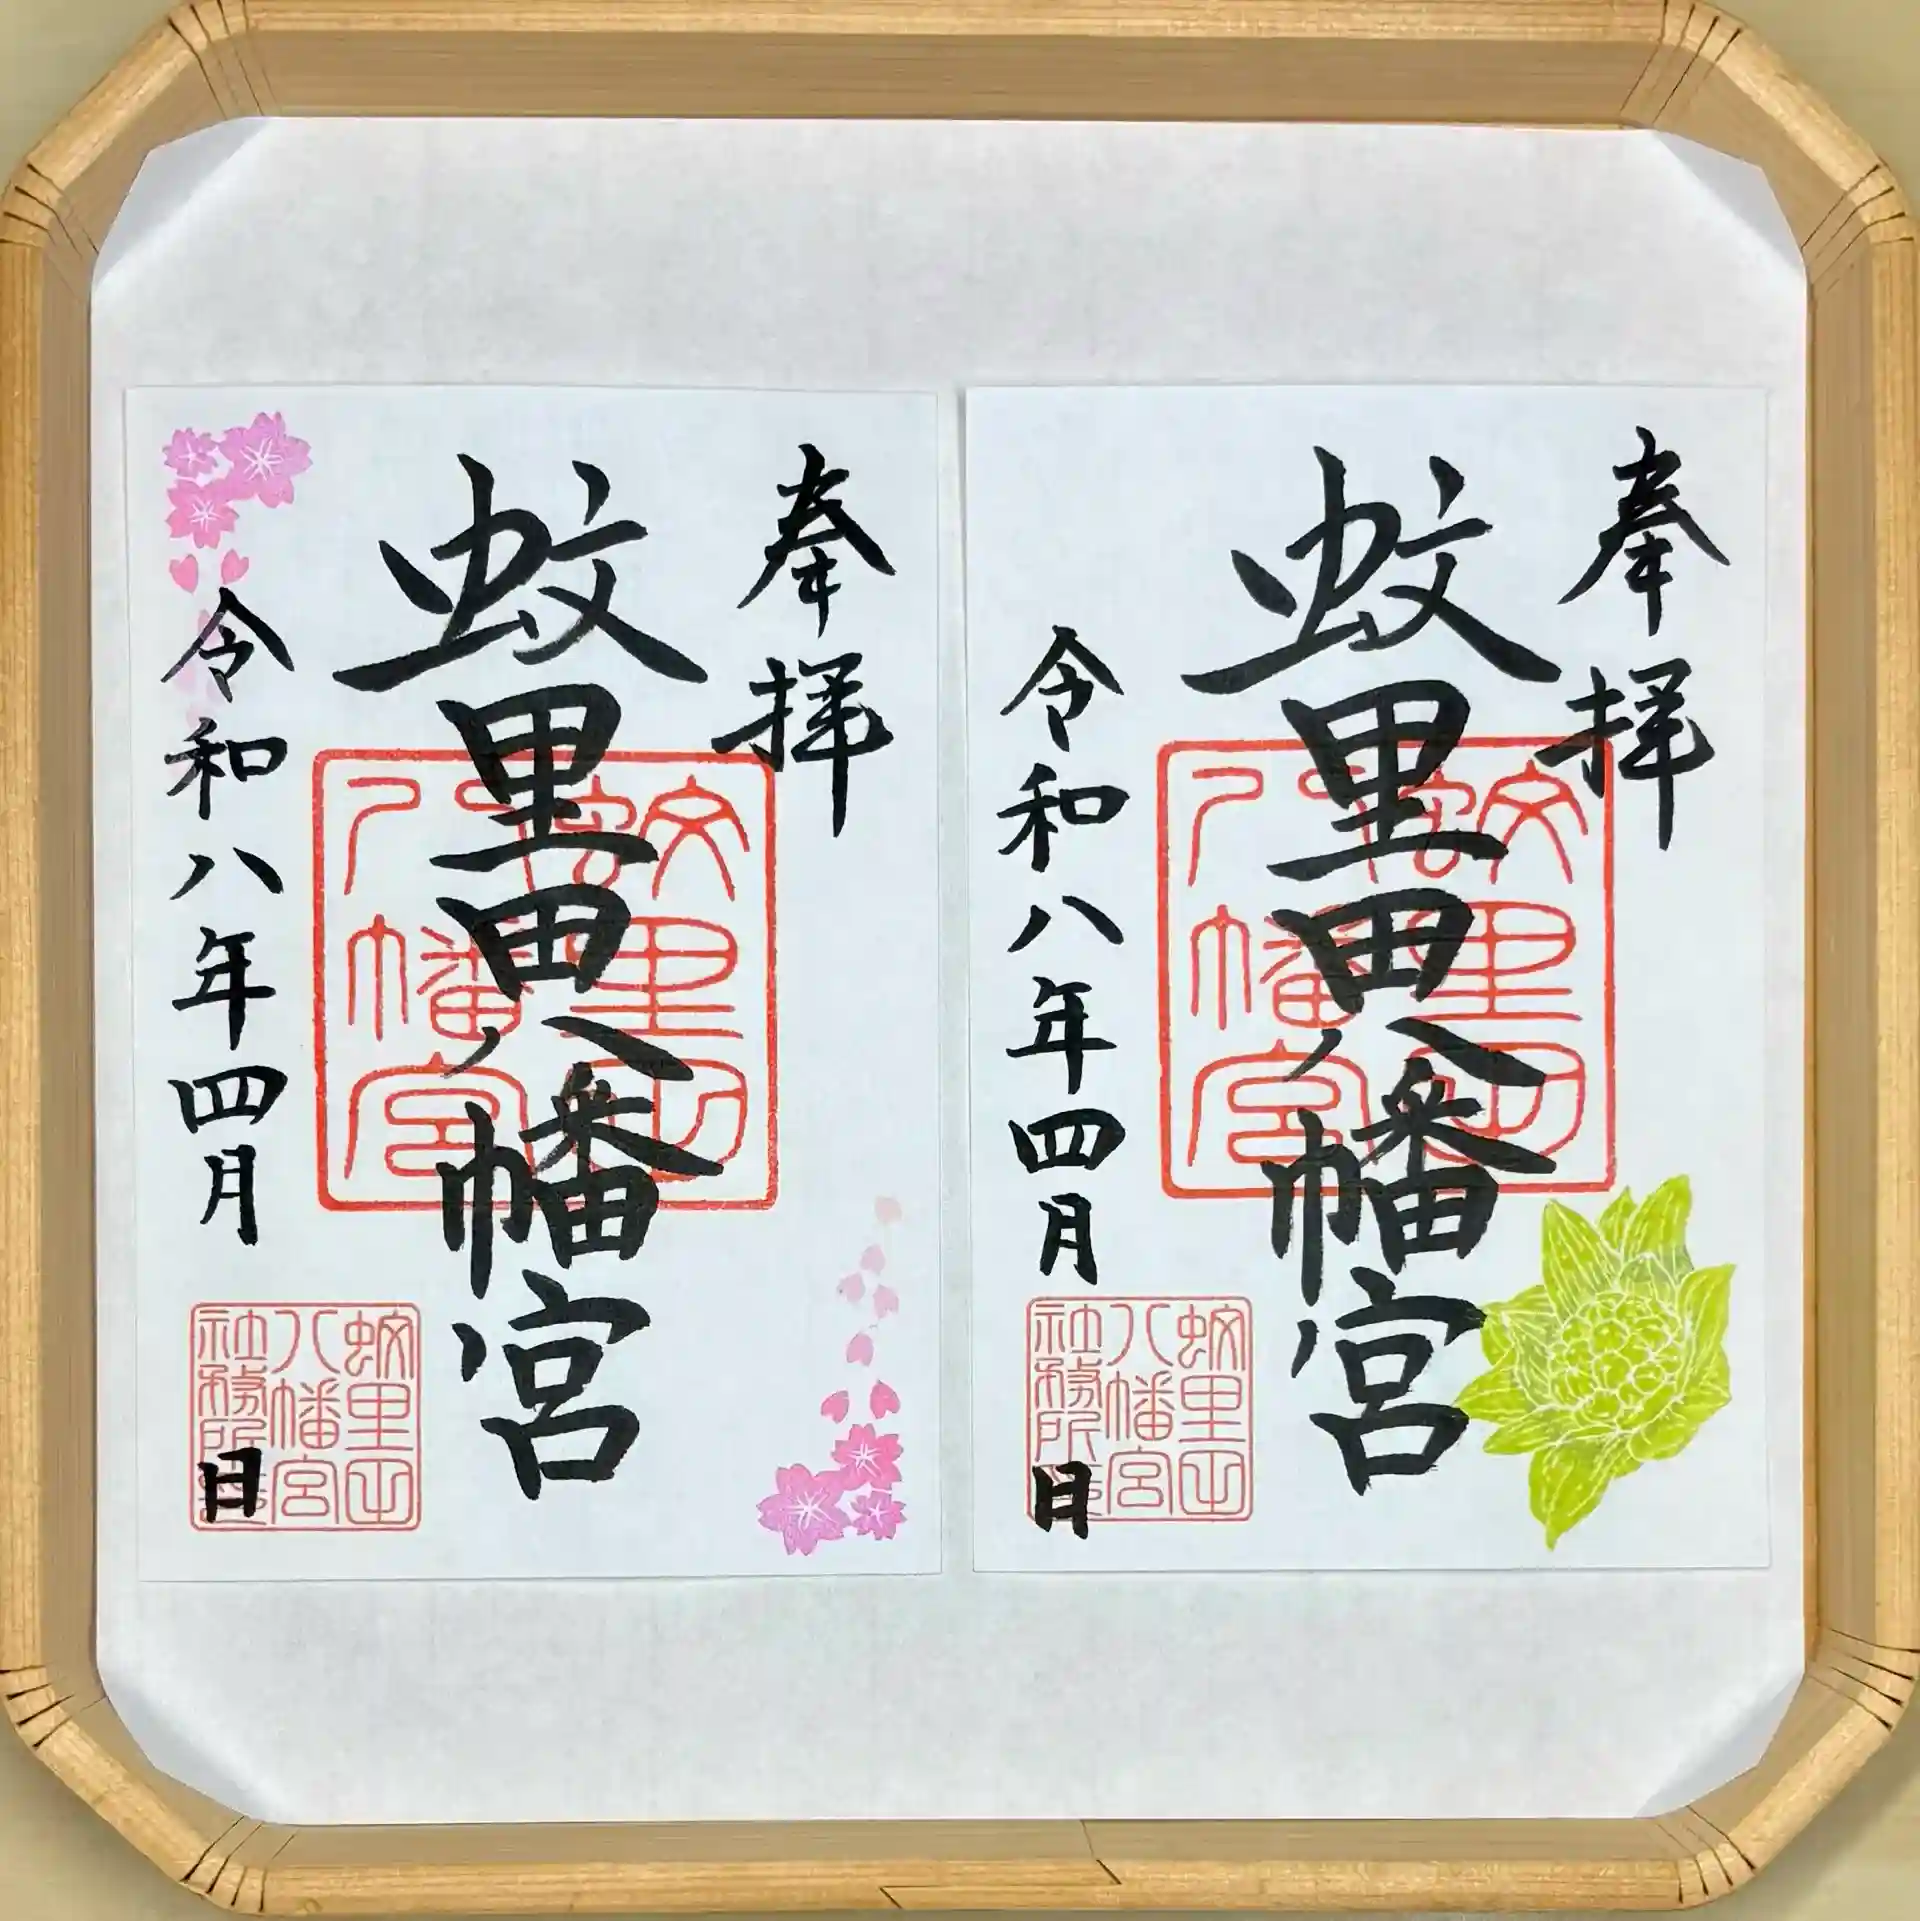 奉拝
蚊里田八幡宮
蚊里田
八幡宮
令和八年四月 日
蚊里田
八幡宮
社務所
奉拝
蚊里田八幡宮
蚊里田
八幡宮
令和八年四月 日
蚊里田
八幡宮
社務所